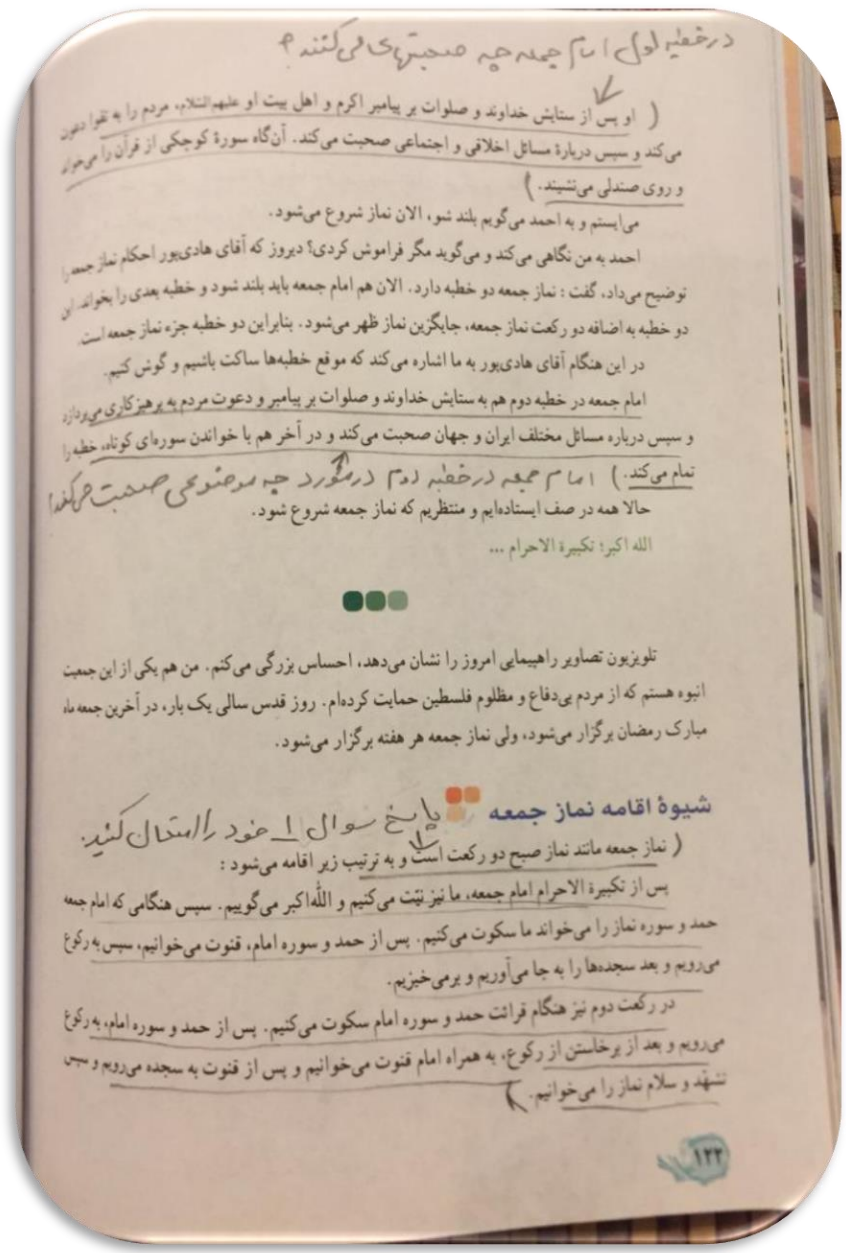 در خطبه اول امام جمعه چه صحبتهای می کنند؟
( او پس از ستایش خداوند و صلوات بر پیامبر اکرم و اهل بیت او علیهم‌السّلام، مردم را به تقوا دعوت
می‌کند و سپس دربارهٔ مسائل اخلاقی و اجتماعی صحبت می‌کند. آن‌گاه سورهٔ کوچکی از قرآن را می‌خواند
و روی صندلی می‌نشیند. )
می‌ایستم و به احمد می‌گویم بلند شو، الان نماز شروع می‌شود.
احمد به من نگاهی می‌کند و می‌گوید مگر فراموش کردی؟ دیروز که آقای هادی‌پور احکام نماز جمعه را
توضیح می‌داد، گفت : نماز جمعه دو خطبه دارد. الان هم امام جمعه باید بلند شود و خطبه بعدی را بخواند. این
دو خطبه به اضافه دو رکعت نماز جمعه، جایگزین نماز ظهر می‌شود. بنابراین دو خطبه جزء نماز جمعه است.
در این هنگام آقای هادی‌پور به ما اشاره می‌کند که موقع خطبه‌ها ساکت باشیم و گوش کنیم.
امام جمعه در خطبه دوم هم به ستایش خداوند و صلوات بر پیامبر و دعوت مردم به پرهیزکاری می‌پردازد
و سپس درباره مسائل مختلف ایران و جهان صحبت می‌کند و در آخر هم با خواندن سوره‌ای کوتاه، خطبه را
تمام می‌کند. ) امام جمعه در خطبه دوم در مورد چه موضوعی صحبت می‌کند؟
حالا همه در صف ایستاده‌ایم و منتظریم که نماز جمعه شروع شود.
الله اکبر؛ تکبیرة الاحرام ...
تلویزیون تصاویر راهپیمایی امروز را نشان می‌دهد، احساس بزرگی می‌کنم. من هم یکی از این جمعیت
انبوه هستم که از مردم بی‌دفاع و مظلوم فلسطین حمایت کرده‌ام. روز قدس سالی یک بار، در آخرین جمعه ماه
مبارک رمضان برگزار می‌شود، ولی نماز جمعه هر هفته برگزار می‌شود.
شیوهٔ اقامه نماز جمعه پاسخ سوال ۱ خود را امتحان کنید.
( نماز جمعه مانند نماز صبح دو رکعت است و به ترتیب زیر اقامه می‌شود :
پس از تکبیرة الاحرام امام جمعه، ما نیز نیّت می‌کنیم و اللّه‌اکبر می‌گوییم. سپس هنگامی که امام جمعه
حمد و سوره نماز را می‌خواند ما سکوت می‌کنیم. پس از حمد و سوره امام، قنوت می‌خوانیم، سپس به رکوع
می‌رویم و بعد سجده‌ها را به جا می‌آوریم و برمی‌خیزیم.
در رکعت دوم نیز هنگام قرائت حمد و سوره امام سکوت می‌کنیم. پس از حمد و سوره امام، به رکوع
می‌رویم و بعد از برخاستن از رکوع، به همراه امام قنوت می‌خوانیم و پس از قنوت به سجده می‌رویم و سپس
تشهّد و سلام نماز را می‌خوانیم. )
۱۲۲